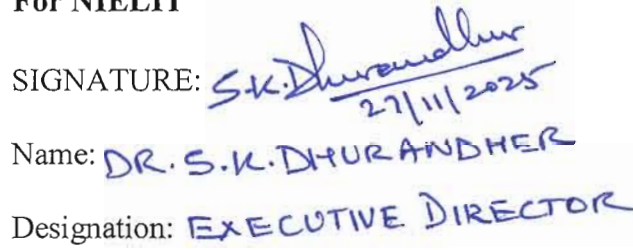 For NIELIT
SIGNATURE: S.K. Dhurandher
27/11/2025
Name: DR. S.K. DHURANDHER
Designation: EXECUTIVE DIRECTOR